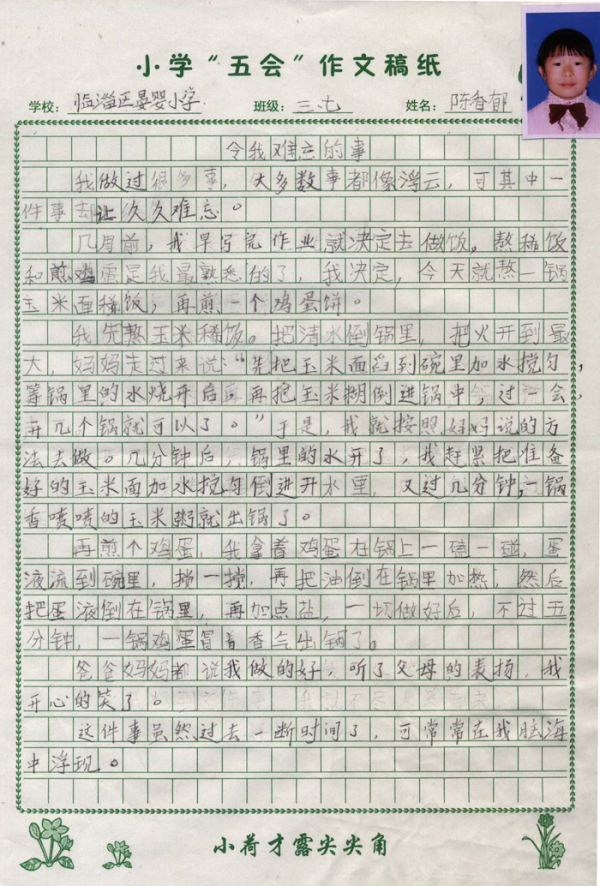 小学“五会”作文稿纸
学校: 临淄区晏婴小学 班级: 三.七 姓名: 陈香郁
令我难忘的事
我做过很多事，大多数事都像浮云，可其中一
件事却让久久难忘。
几月前，我早写完作业就决定去做饭。熬稀饭
和煎鸡蛋是我最熟悉的了，我决定，今天就熬一锅
玉米面稀饭，再煎一个鸡蛋饼。
我先熬玉米稀饭。把清水倒锅里，把火开到最
大，妈妈走过来说：“先把玉米面舀到碗里加水搅匀，
等锅里的水烧开后再把玉米糊倒进锅中，过一会，
开几个锅就可以了。”于是，我就按照妈妈说的方
法去做。几分钟后，锅里的水开了，我赶紧把准备
好的玉米面加水搅匀倒进开水里，又过几分钟，一锅
香喷喷的玉米粥就出锅了。
再煎个鸡蛋，我拿着鸡蛋在锅上一碰一碰，蛋
液流到碗里，搅一搅，再把油倒在锅里加热，然后
把蛋液倒在锅里，再加点盐，一切做好后，不过五
分钟，一锅鸡蛋冒着香气出锅了。
爸爸妈妈都说我做的好，听了父母的表扬，我
开心的笑了。
这件事虽然过去一断时间了，可常常在我脑海
中浮现。
小荷才露尖尖角